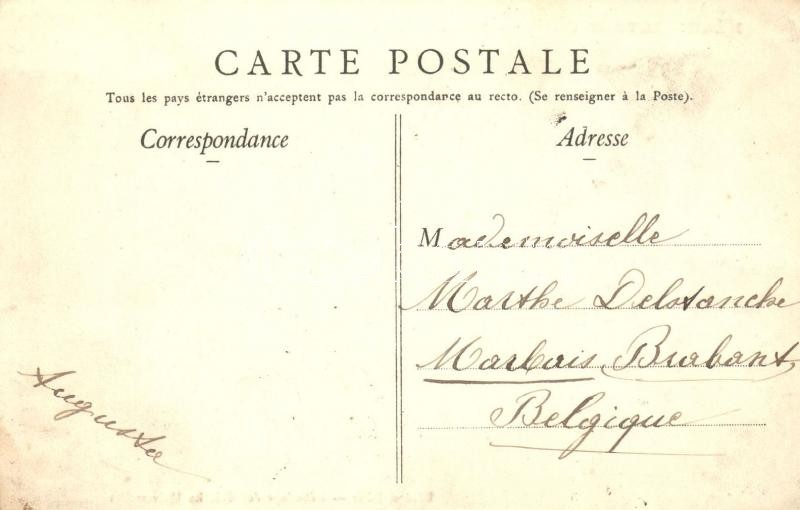 CARTE POSTALE
Tous les pays étrangers n'acceptent pas la correspondance au recto. (Se renseigner à la Poste).
Correspondance
Adresse
Mademoiselle
Marthe Delstanche
Marbais Brabant
Belgique
Augusta